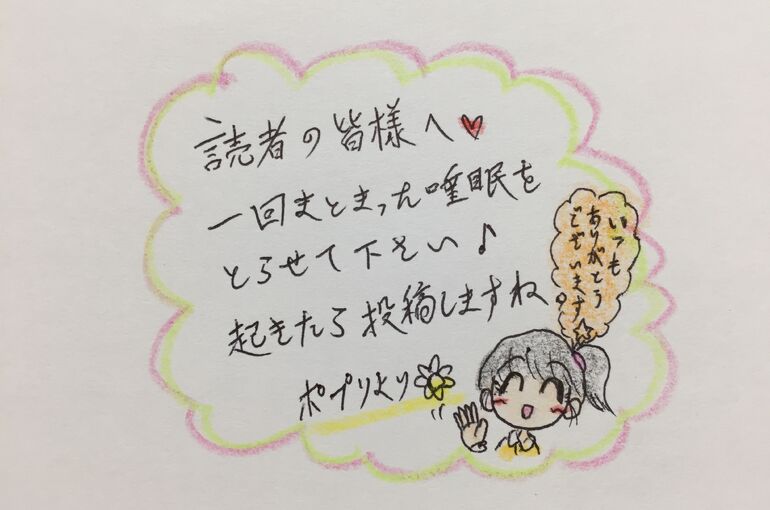 読者の皆様へ♥
一回まとまった睡眠を
とらせて下さい♪
起きたら投稿しますね。
ポプリより
いつも
ありがとう
ございます☆